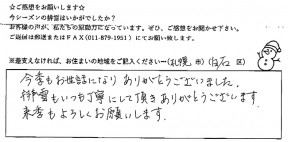 ☆ご感想をお願いします☆
今シーズンの排雪はいかがでしたか?
お客様の声が、私たちの原動力になっています。ぜひ、ご感想をお聞かせ下さい。
ご返信は郵送またはFAX(011-879-1951)にてお願い致します。
※差支えなければ、お住まいの地域をご記入ください(札幌 市)(白石 区)
今季もお世話になり ありがとうございました。
排雪もいつも丁寧にして頂きありがとうございます
来季もよろしくお願いします。